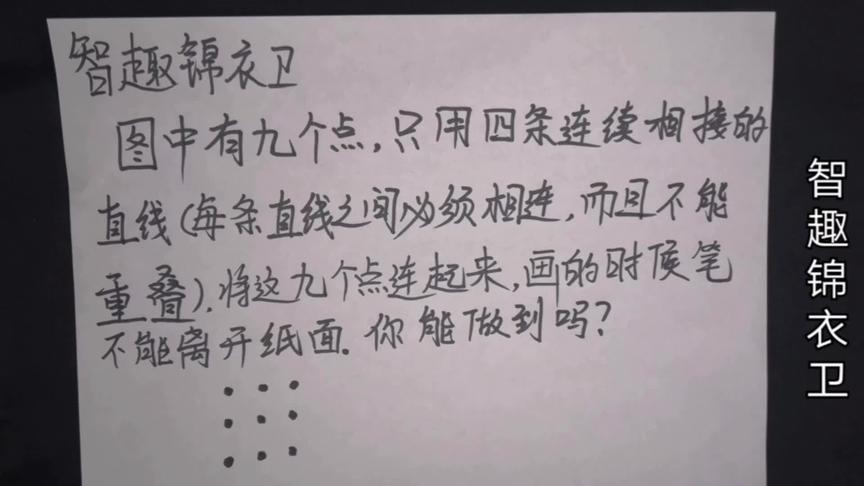 智趣锦衣卫
图中有九个点,只用四条连续相接的
直线(每条直线之间必须相连,而且不能
重叠).将这九个点连起来,画的时候笔
不能离开纸面.你能做到吗?
智趣锦衣卫